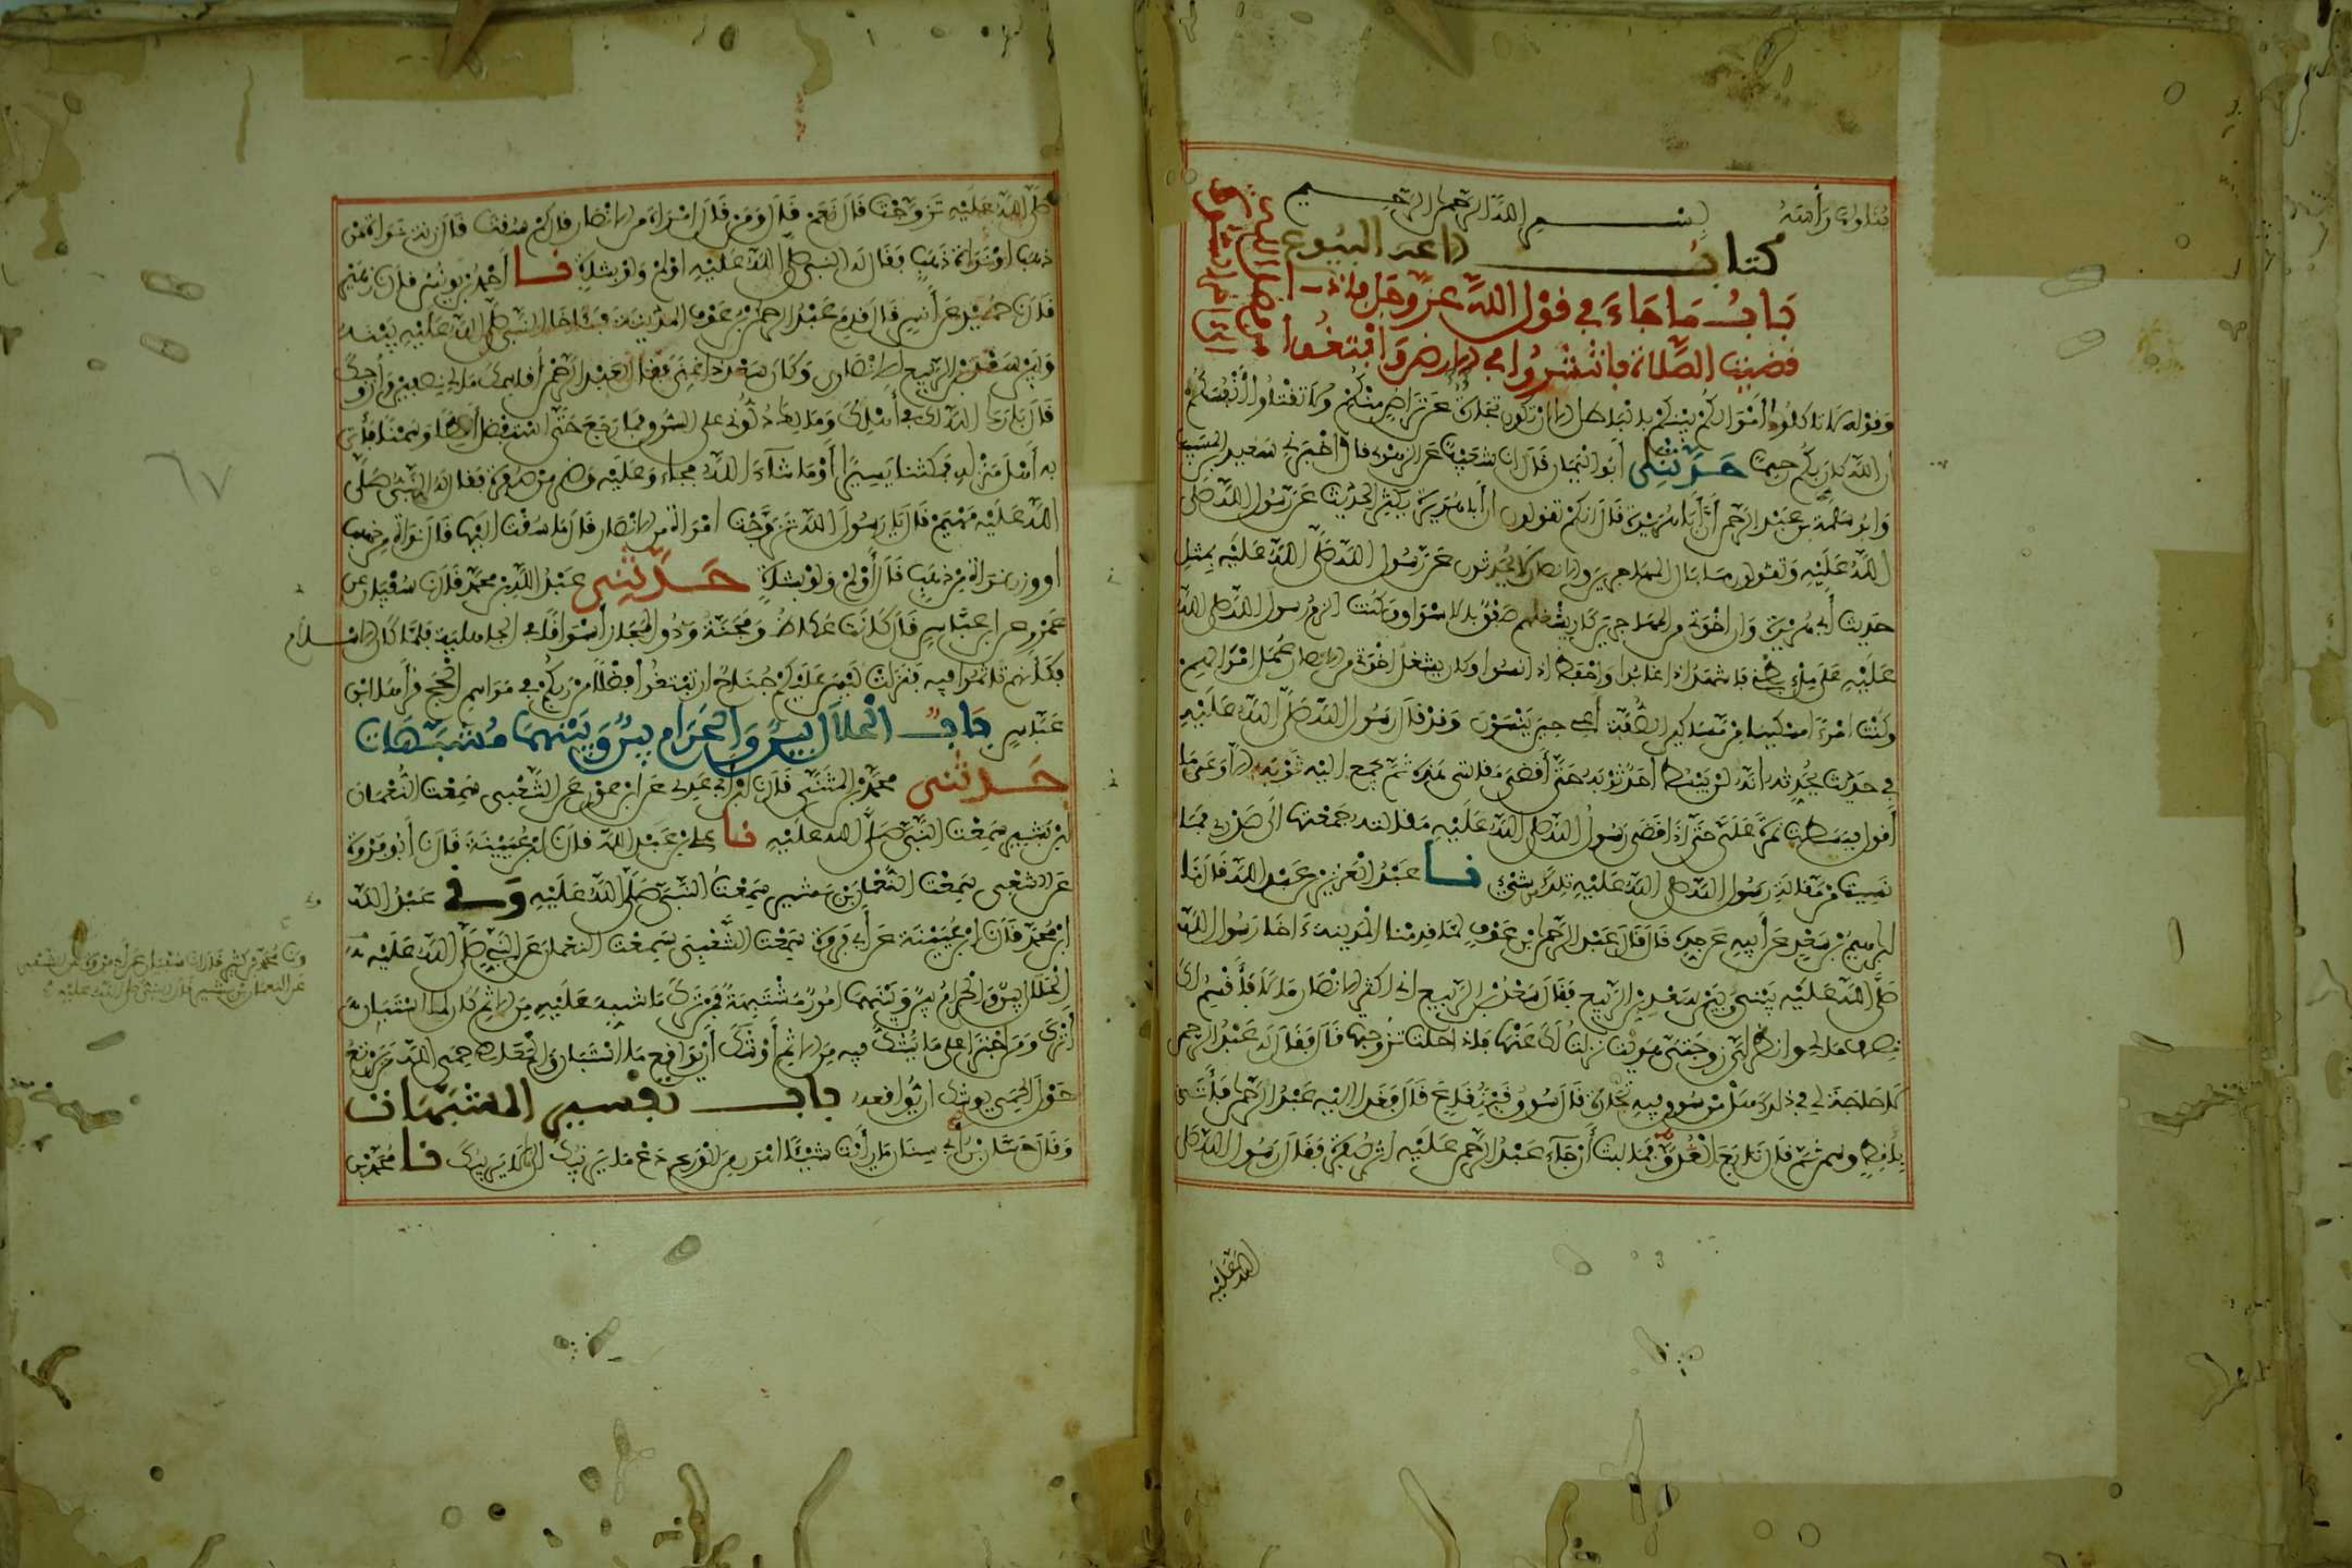 بسم الله الرحمن الرحيم
كتاب البيوع
باب ما جاء في قول الله عز وجل فإذا
قضيت الصلاة فانتشروا في الارض وابتغوا
وقوله لا تاكلوا أموالكم بينكم بالباطل الا ان تكون تجارة عن تراض منكم ولا تقتلوا أنفسكم
ان الله كان بكم رحيما حدثنا أبو اليمان قال انا شعيب عن الزهري قال اخبرني سعيد بن المسيب
وابو سلمة بن عبد الرحمن أن أبا هريرة قال انكم تقولون ان أبا هريرة يكثر الحديث عن رسول الله صلى
الله عليه وتقولون ما بال المهاجرين والانصار لا يحدثون عن رسول الله صلى الله عليه بمثل
حديث أبي هريرة وان اخوتي من المهاجرين كان يشغلهم صفق بالاسواق وكنت الزم رسول الله صلى الله
عليه على ملء بطني فاشهد اذا غابوا واحفظ اذا نسوا وكان يشغل اخوتي من الانصار عمل اموالهم
وكنت امرءا مسكينا من مساكين الصفة أعي حين ينسون وقد قال رسول الله صلى الله عليه
في حديث يحدثه انه لن يبسط أحد ثوبه حتى أقضي مقالتي هذه ثم يجمع اليه ثوبه الا وعى ما
أقول فبسطت نمرة علي حتى اذا قضى رسول الله صلى الله عليه مقالته جمعتها الى صدري فما
نسيت من مقالة رسول الله صلى الله عليه تلك من شيء نا عبد العزيز بن عبد الله قال نا
ابراهيم بن سعد عن أبيه عن جده قال قال عبد الرحمن بن عوف لما قدمنا المدينة ءاخا رسول الله
صلى الله عليه بيني وبين سعد بن الربيع فقال سعد بن الربيع اني اكثر الانصار مالا فأقسم لك
نصف مالي وانظر اي زوجتي هويت نزلت لك عنها فاذا حلت تزوجتها قال فقال له عبد الرحمن
لا حاجة لي في ذلك هل من سوق فيه تجارة قال سوق قينقاع قال فغدا اليه عبد الرحمن فأتى
بأقط وسمن ثم قال تابع الغدو فما لبث أن جاء عبد الرحمن عليه اثر صفرة فقال رسول الله صلى
الله عليه
صلى الله عليه تزوجت قال نعم قال ومن قال امراة من الانصار قال كم سقت قال زنة نواة من
ذهب او نواة ذهب فقال له النبي صلى الله عليه اولم ولو بشاة نا أحمد بن يونس قال نا زهير
قال نا حميد عن أنس قال قدم عبد الرحمن بن عوف المدينة فئاخا النبي صلى الله عليه بينه
وبين سعد بن الربيع الانصاري وكان سعد ذا غنى فقال لعبد الرحمن أقاسمك مالي نصفين وأزوجك
قال بارك الله لك في أهلك ومالك دلوني على السوق فما رجع حتى استفضل أقطا وسمنا فأتى
به أهل منزله فمكثنا يسيرا أو ما شاء الله فجاء وعليه وضر من صفرة فقال له النبي صلى
الله عليه مهيم قال يا رسول الله تزوجت امراة من الانصار قال ما سقت اليها قال نواة من ذهب
أو وزن نواة من ذهب قال أولم ولو بشاة حدثني عبد الله بن محمد قال نا سفيان عن
عمرو عن ابن عباس قال كانت عكاظ ومجنة وذو المجاز أسواقا في الجاهلية فلما كان الاسلام
فكأنهم تاثموا فيه فنزلت ليس عليكم جناح ان تبتغوا فضلا من ربكم في مواسم الحج قرأها ابن
عباس باب الحلال بين والحرام بين وبينهما مشبهات
حدثني محمد بن المثنى قال نا ابن أبي عدي عن ابن عون عن الشعبي سمعت النعمان
ابن بشير سمعت النبي صلى الله عليه نا علي بن عبد الله قال نا ابن عيينة قال نا أبو فروة
عن الشعبي سمعت النعمان بن بشير سمعت النبي صلى الله عليه ونا عبد الله
ابن محمد قال نا ابن عيينة عن أبي فروة سمعت الشعبي سمعت النعمان عن النبي صلى الله عليه
الحلال بين والحرام بين وبينهما امور مشتبهة فمن ترك ما شبه عليه من الاثم كان لما استبان له
أترك ومن اجترأ على ما يشك فيه من الاثم أوشك أن يواقع ما استبان والمعاصي حمى الله من يرتع
حول الحمى يوشك ان يواقعه باب تفسير المشبهات
وقال حسان بن أبي سنان ما رأيت شيئا اهون من الورع دع ما يريبك الى ما لا يريبك نا محمد بن
ونا محمد بن كثير قال نا سفيان عن أبي فروة عن الشعبي
عن النعمان بن بشير قال النبي صلى الله عليه
٦٧